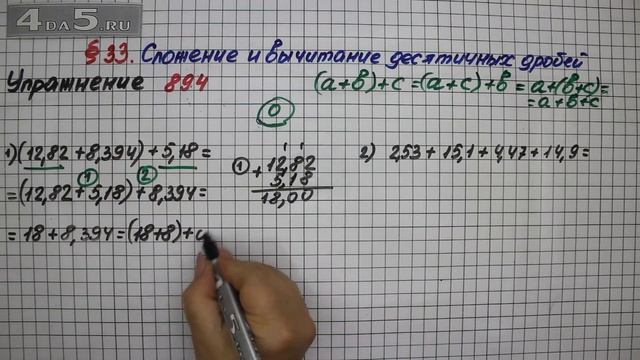 4DA5.RU
§ 33. Сложение и вычитание десятичных дробей
Упражнение 894
(a+b)+c=(a+c)+b=a+(b+c)=
=a+b+c
0
1) (12,82+8,394)+5,18=
=(12,82+5,18)+8,394=
1 2
=18+8,394=(18+8)+
1 1
1 +12,82
5,18
18,00
2) 2,53+15,1+4,47+14,9=